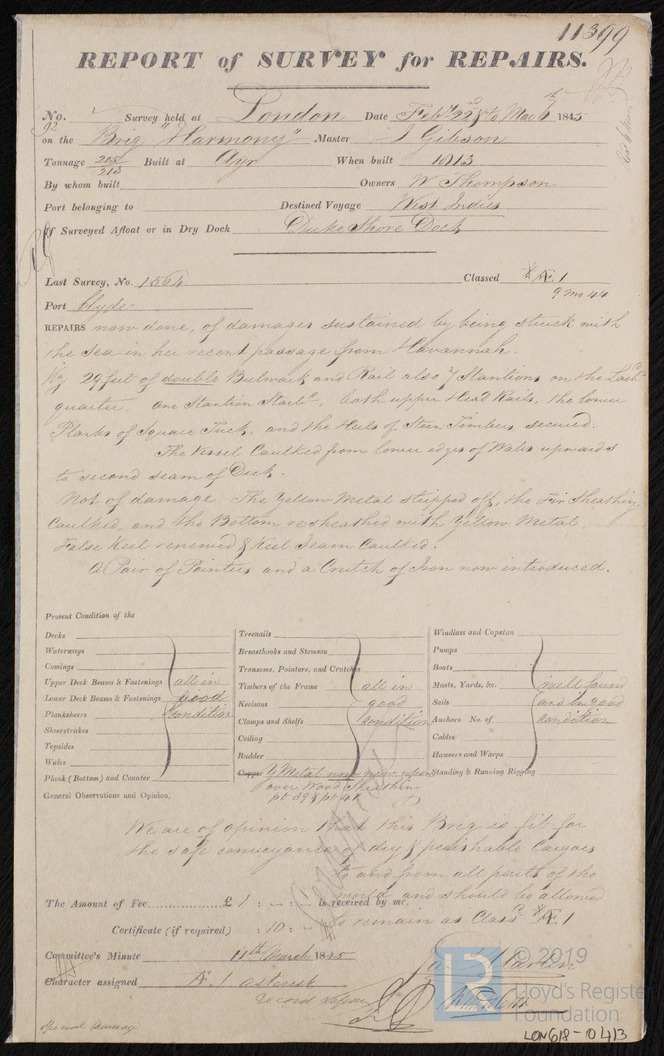 11399
REPORT of SURVEY for REPAIRS.
No. 92 Survey held at London Date Feby 22d to Mar 1845
on the Brig "Harmony" Master J Gibson
Tonnage 205/213 Built at Ayr When built 1813
By whom built Owners W Thompson
Port belonging to Destined Voyage West Indies
If Surveyed Afloat or in Dry Dock Duke Shore Dock
Last Survey, No. 1564 Classed Æ 1
Port Clyde 9 mo 44
REPAIRS now done, of damages sustained by being struck with
the Sea in her recent passage from Havannah.
Viz 29 feet of double Bulwark and Rail also 7 Stantions on the Larbd
quarter, one Stantion Starbd, both upper Head Rails, the lower
Planks of Square Tuck, and the Heels of Stern Timbers secured.
The Vessel Caulked from lower edges of Wales upwards
to second seam of Deck.
Not of damage. The Yellow Metal stripped off, the Fir Sheathing
Caulked, and the Bottom resheathed with Yellow Metal.
False Keel renewed & Keel Seam Caulked.
A Pair of Pointers and a Crutch of Iron now introduced.
Present Condition of the
Decks
Waterways
Comings
Upper Deck Beams & Fastenings all in
Lower Deck Beams & Fastenings good
Planksheers condition
Sheerstrakes
Topsides
Wales
Plank (Bottom) and Counter
Treenails
Breasthooks and Stemson
Transoms, Pointers, and Crutches
Timbers of the Frame all in
Keelsons good
Clamps and Shelfs condition
Ceiling
Rudder
Copper Y Metal now new upon
over Wood Sheathing
Windlass and Capstan
Pumps
Boats
Masts, Yards, &c. well found
Sails and in good
Anchors No. of condition
Cables
Hawsers and Warps
Standing & Running Rigging
General Observations and Opinion,
We are of opinion that this Brig is fit for
the safe conveyance of dry & perishable Cargoes
to and from all parts of the
world and should be allowed
to remain as Classd Æ 1
The Amount of Fee £1 : - : - is received by me,
Certificate (if required) : 10 :
Committee's Minute 11th March 1845
Character assigned Æ 1
Special Survey
© 2019
Lloyd's Register
Foundation
LON618-0413